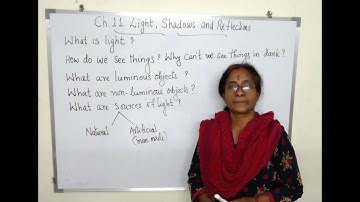 Ch 11 Light, Shadows and Reflections
What is light ?
How do we see things ? Why can't we see things in dark ?
What are luminous objects ?
What are non-luminous objects ?
What are sources of light ?
Natural Artificial
(man made)